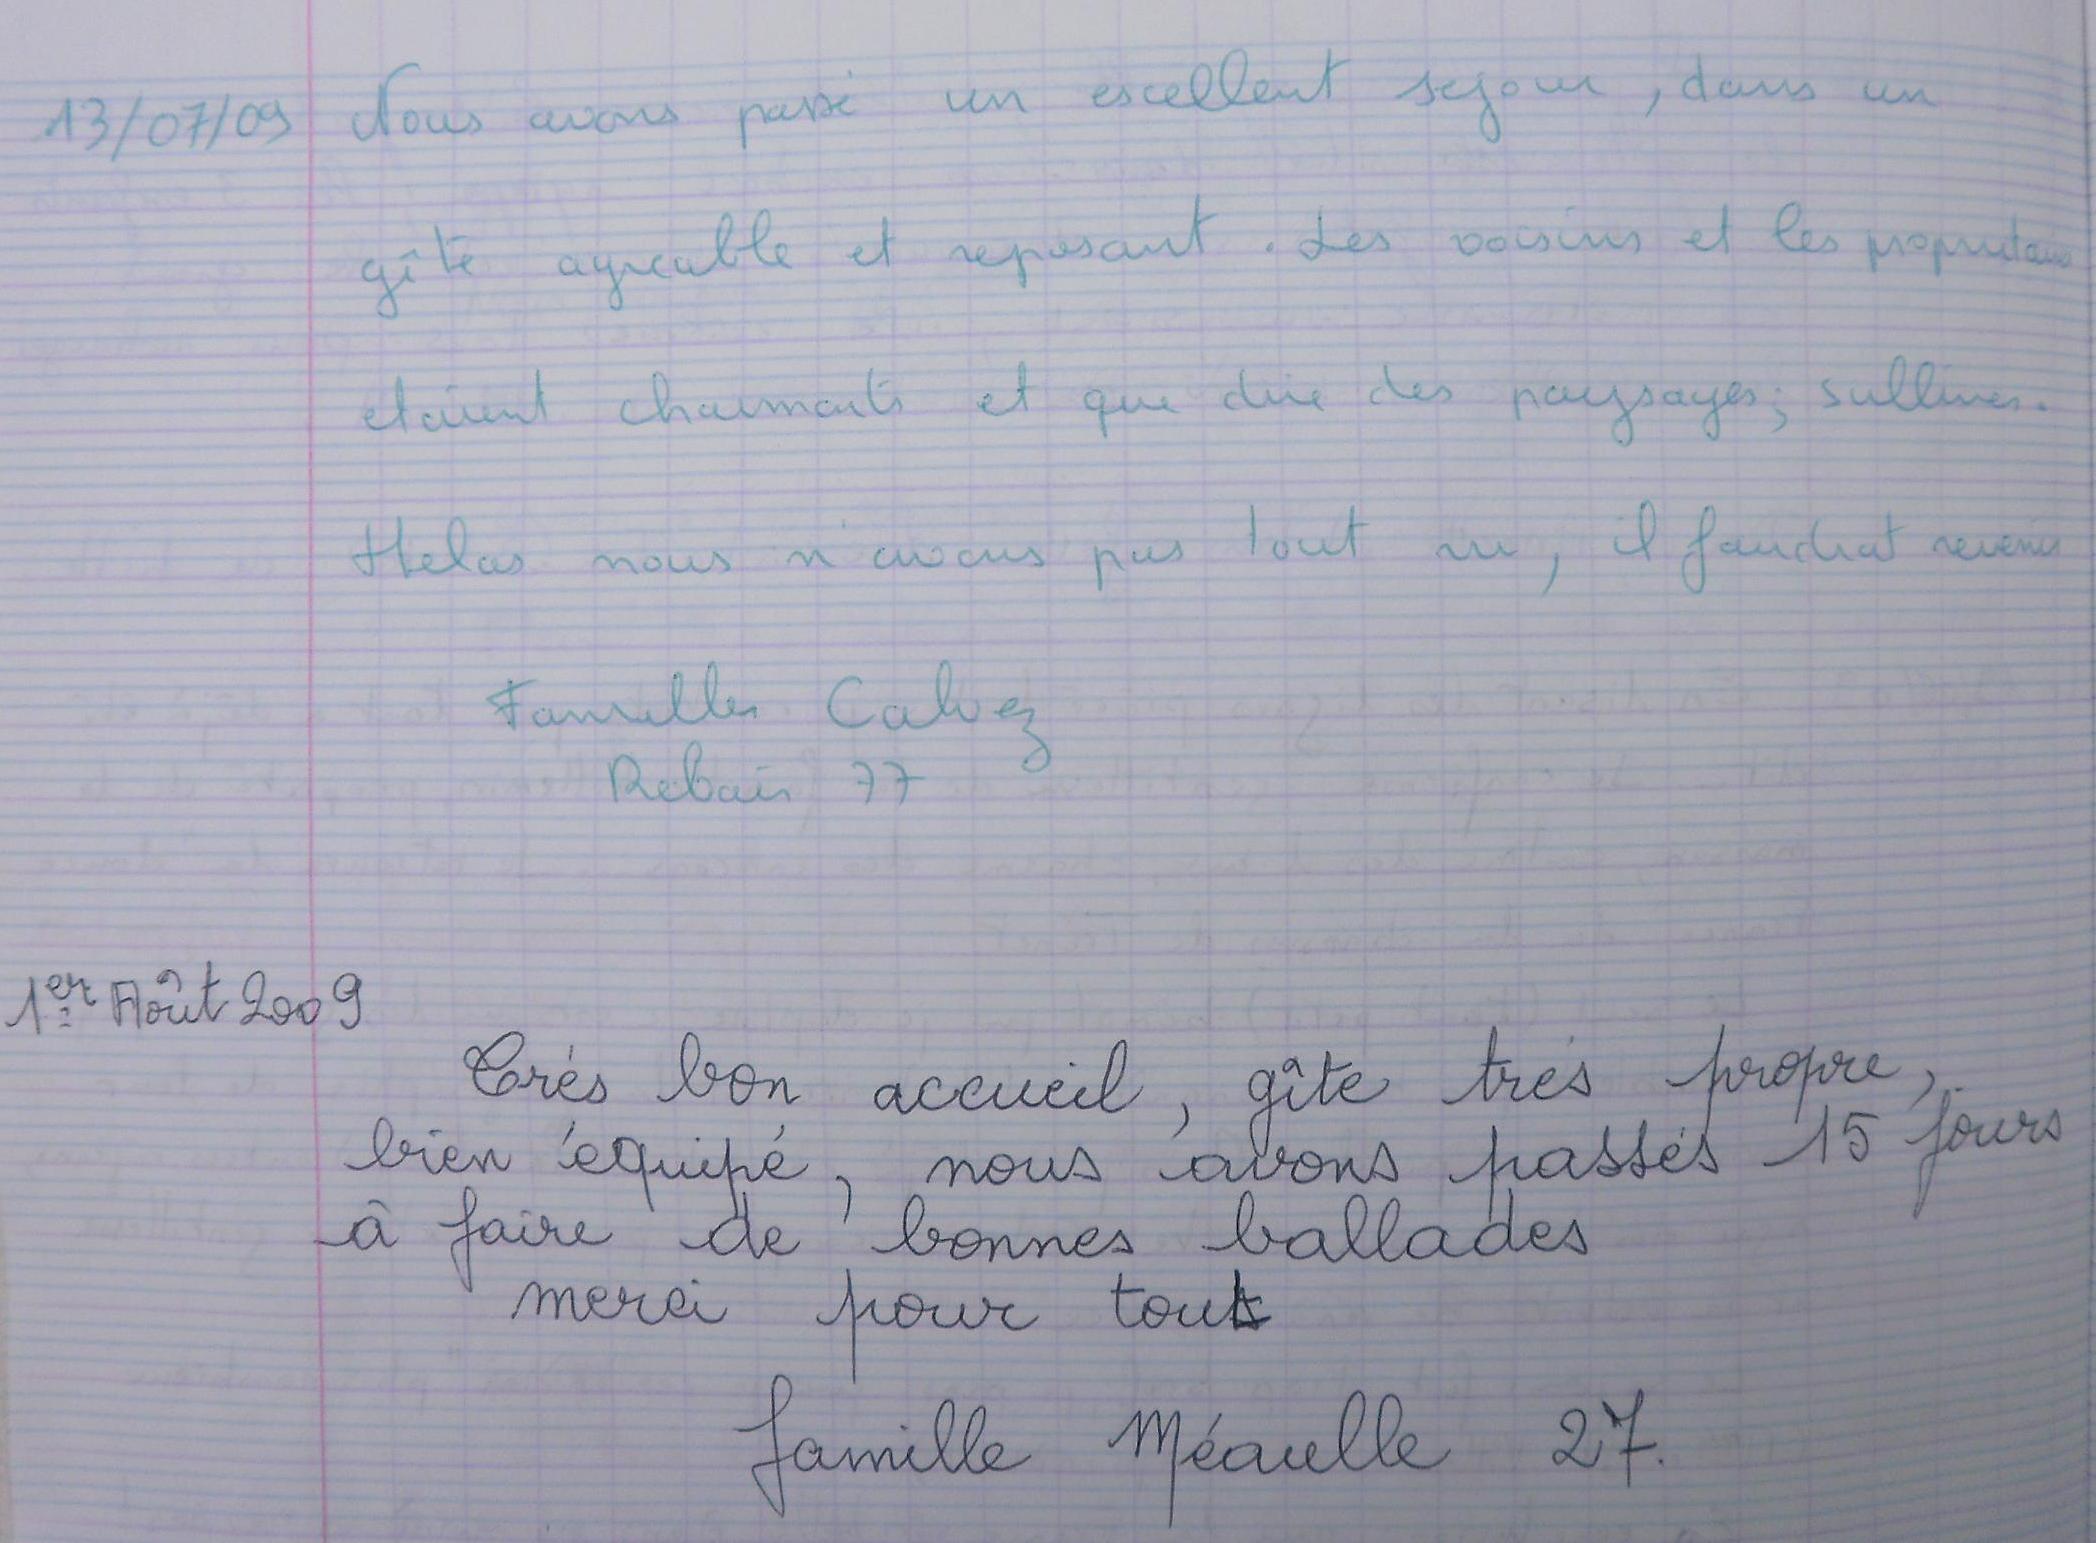 13/07/09 Nous avons passé un escellent sejour, dans un
gîte agreable et reposant. Les voisins et les proprietaires
etaient charmants et que dire des paysages; sublimes.
Helas nous n'avons pas tout vu, il faudrat revenir
Familles Calvez
Rebais 77
1er Août 2009
Trés bon accueil, gîte trés propre,
bien équipé, nous avons passés 15 jours
à faire de bonnes ballades
merci pour tout
famille Méaulle 27.